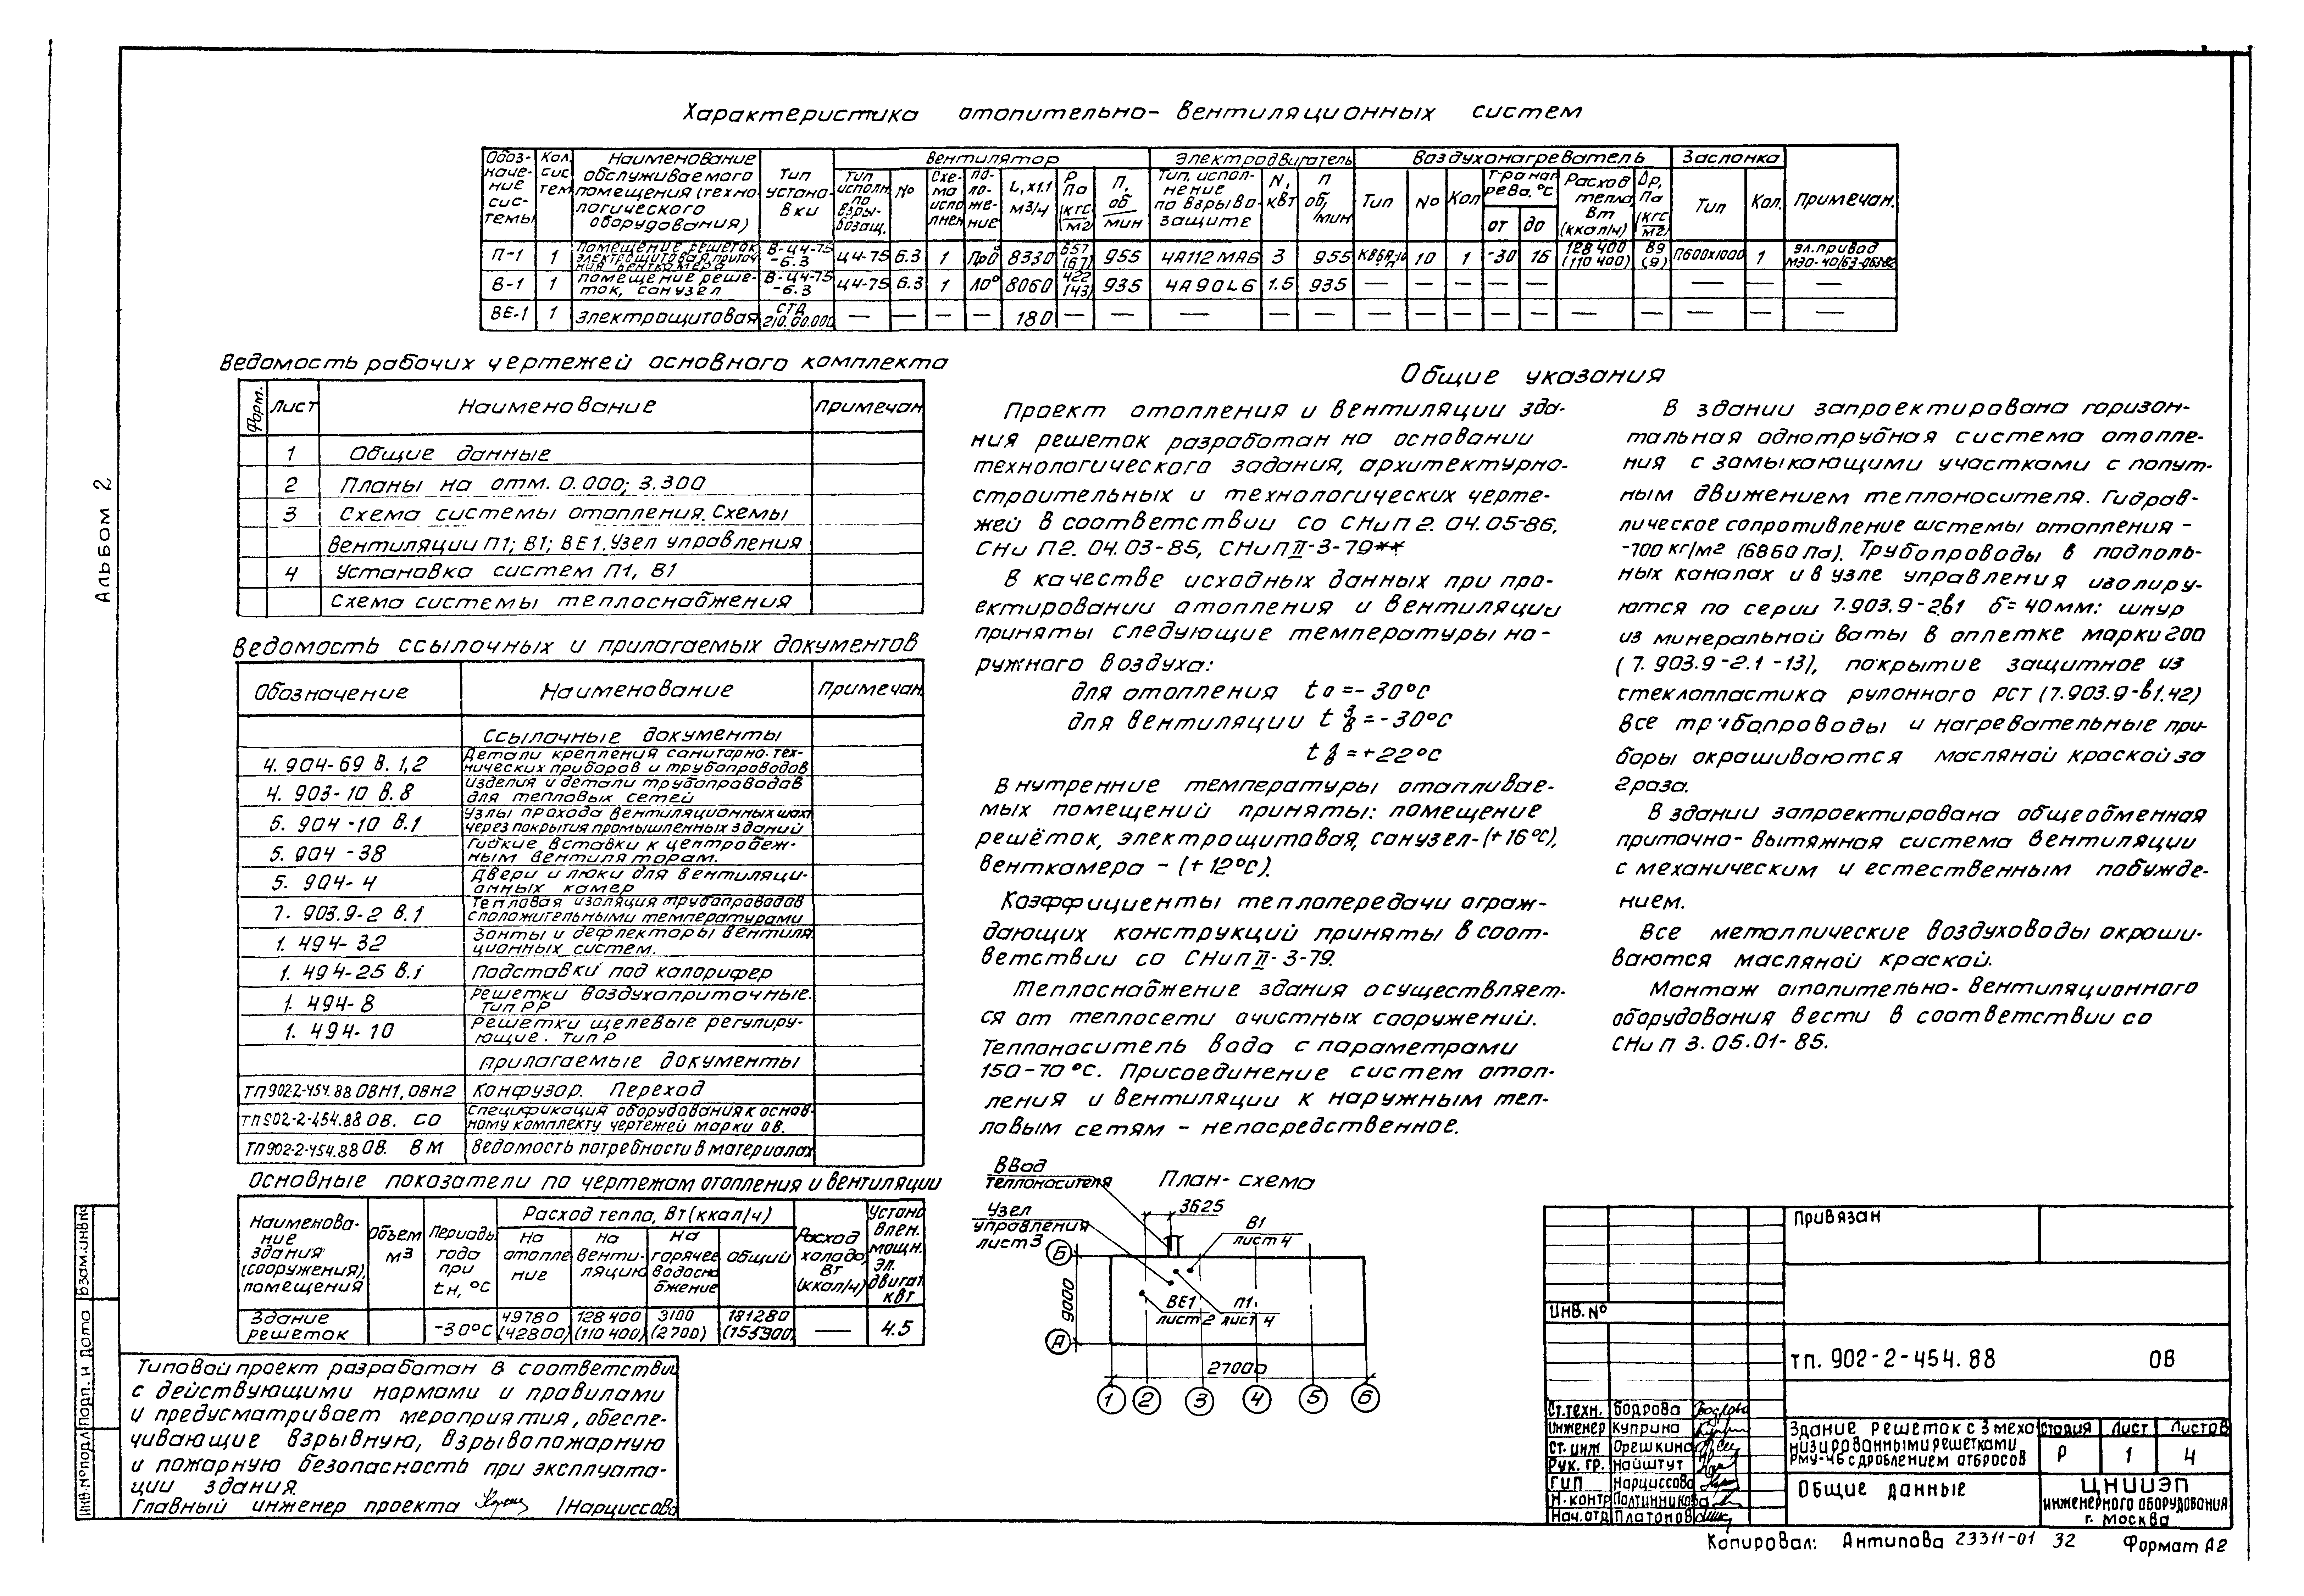 Альбом 2
Характеристика отопительно-вентиляционных систем
Обозначение системы | Кол. систем | Наименование обслуживаемого помещения (технологического оборудования) | Тип установки | Вентилятор | Электродвигатель | Воздухонагреватель | Заслонка | Примечан.
Тип исполн. по взрывозащ. | № | Схема исполнен | Положение | L, х1.1 м3/ч | Р Па (кгс/м2) | П, об/мин | Тип, исполнение по взрывозащите | N, квт | П об/мин | Тип | № | Кол | Т-ра нагрева, °С от до | Расход тепла, Вт (ккал/ч) | Δр, Па (кгс/м2) | Тип | Кол.
П-1 | 1 | помещение решеток электрощитовая, приточная венткамера | В-Ц4-75 -6.3 | Ц4-75 | 6.3 | 1 | Пр0° | 8330 | 657 (67) | 955 | 4А112МА6 | 3 | 955 | КВБ8-п | 10 | 1 | -30 | 16 | 128400 (110400) | 89 (9) | П600х1000 | 1 | эл.привод МЭО-40/63-0.63-82
В-1 | 1 | помещение решеток, санузел | В-Ц4-75 -6.3 | Ц4-75 | 6.3 | 1 | Л0° | 8060 | 422 (43) | 935 | 4А90L6 | 1.5 | 935 | — | — | — | — | — | — | — | —
ВЕ-1 | 1 | электрощитовая | СТД 210.00.000 | — | — | — | — | 180 | — | — | — | — | — | — | — | — | — | — | — | — | — | — | —
Ведомость рабочих чертежей основного комплекта
Форм. | Лист | Наименование | Примечан
1 | Общие данные
2 | Планы на отм. 0.000; 3.300
3 | Схема системы отопления. Схемы
вентиляции П1; В1; ВЕ1. Узел управления
4 | Установка систем П1, В1
Схема системы теплоснабжения
Ведомость ссылочных и прилагаемых документов
Обозначение | Наименование | Примечан.
Ссылочные документы
4.904-69 в.1,2 | Детали крепления санитарно-технических приборов и трубопроводов
4.903-10 в.8 | Изделия и детали трубопроводов для тепловых сетей
5.904-10 в.1 | Узлы прохода вентиляционных шахт через покрытия промышленных зданий
5.904-38 | Гибкие вставки к центробежным вентиляторам.
5.904-4 | Двери и люки для вентиляционных камер
7.903.9-2 в.1 | Тепловая изоляция трубопроводов с положительными температурами
1.494-32 | Зонты и дефлекторы вентиляционных систем.
1.494-25 в.1 | Подставки под калорифер
1.494-8 | Решетки воздухоприточные. Тип РР
1.494-10 | Решетки щелевые регулирующие. Тип Р
Прилагаемые документы
ТП902-2-454.88 ОВН1, ОВН2 | Конфузор. Переход
ТП902-2-454.88 ОВ. СО | Спецификация оборудования к основному комплекту чертежей марки ОВ.
ТП902-2-454.88 ОВ. ВМ | Ведомость потребности в материалах
Основные показатели по чертежам отопления и вентиляции
Наименование здания (сооружения), помещения | Объем м3 | Периоды года при tн, °С | Расход тепла, Вт (ккал/ч) | Расход холода, Вт (ккал/ч) | Установлен. мощн. эл. двигат квт
На отопление | на вентиляцию | на горячее водоснабжение | общий
Здание решеток | -30°С | 49780 (42800) | 128400 (110400) | 3100 (2700) | 181280 (155900) | — | 4.5
Типовой проект разработан в соответствии
с действующими нормами и правилами
и предусматривает мероприятия, обеспе-
чивающие взрывную, взрывопожарную
и пожарную безопасность при эксплуата-
ции здания.
Главный инженер проекта /Нарциссова
Общие указания
Проект отопления и вентиляции зда-
ния решеток разработан на основании
технологического задания, архитектурно-
строительных и технологических черте-
жей в соответствии со СНиП 2.04.05-86,
СНиП 2.04.03-85, СНиП II-3-79**
В качестве исходных данных при про-
ектировании отопления и вентиляции
приняты следующие температуры на-
ружного воздуха:
для отопления t о = -30°С
для вентиляции t з/в = -30°С
t в = +22°С
Внутренние температуры отапливае-
мых помещений приняты: помещение
решёток, электрощитовая, санузел-(+16°С),
венткамера - (+12°С).
Коэффициенты теплопередачи ограж-
дающих конструкций приняты в соот-
ветствии со СНиП II-3-79.
Теплоснабжение здания осуществляет-
ся от теплосети очистных сооружений.
Теплоноситель вода с параметрами
150-70°С. Присоединение систем отоп-
ления и вентиляции к наружным теп-
ловым сетям - непосредственное.
В здании запроектирована горизон-
тальная однотрубная система отопле-
ния с замыкающими участками с попут-
ным движением теплоносителя. Гидрав-
лическое сопротивление системы отопления -
-700 кг/м2 (6860 Па). Трубопроводы в подполь-
ных каналах и в узле управления изолиру-
ются по серии 7.903.9-2в1 б=40мм: шнур
из минеральной ваты в оплетке марки 200
(7.903.9-2.1-13), покрытие защитное из
стеклопластика рулонного РСТ (7.903.9-в1.42)
Все трубопроводы и нагревательные при-
боры окрашиваются масляной краской за
2 раза.
В здании запроектирована общеобменная
приточно-вытяжная система вентиляции
с механическим и естественным побужде-
нием.
Все металлические воздуховоды окраши-
ваются масляной краской.
Монтаж отопительно-вентиляционного
оборудования вести в соответствии со
СНиП 3.05.01-85.
План-схема
Ввод теплоносителя
Узел управления лист 3
3625
В1 лист 4
ВЕ1 лист 2
П1 лист 4
Б
А
9000
27000
1 2 3 4 5 6
Привязан
Инв. №
тп. 902-2-454.88 ОВ
Ст.техн. Бодрова
Инженер Куприна
Ст. инж Орешкина
Рук. гр. Найштут
ГИП Нарциссова
Н. контр Полтинникова
Нач. отд Платонов
Здание решеток с 3 меха-
низированными решетками
РМУ-4Б с дроблением отбросов
Стадия | Лист | Листов
Р | 1 | 4
Общие данные
ЦНИИЭП
инженерного оборудования
г. Москва
Копировал: Антипова 23311-01 32 Формат А2
Инв.№подл. Подп. и дата Взам.инв№